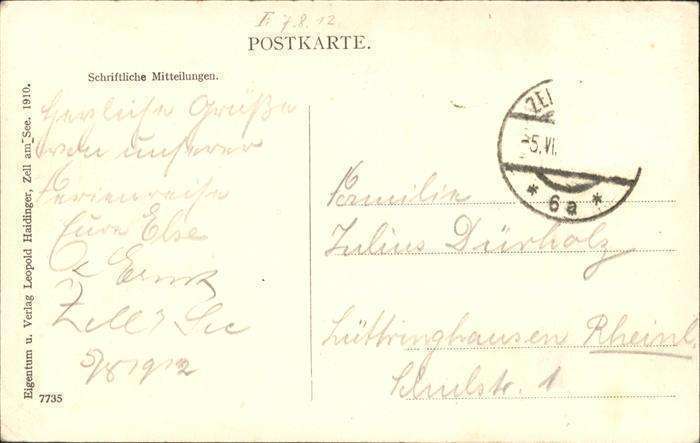 E. 7.8.12
POSTKARTE.
Schriftliche Mitteilungen.
Herzliche Grüße
von unserer
Ferienreise
Eure Else
& Ernst
Zell a/ See
5/8 1912
Eigentum u. Verlag Leopold Haidinger, Zell am See. 1910.
7735
ZEL
-5.VI.
* 6a *
Familie
Julius Dürholz
Lüttringhausen Rheinl.
Schulstr. 1